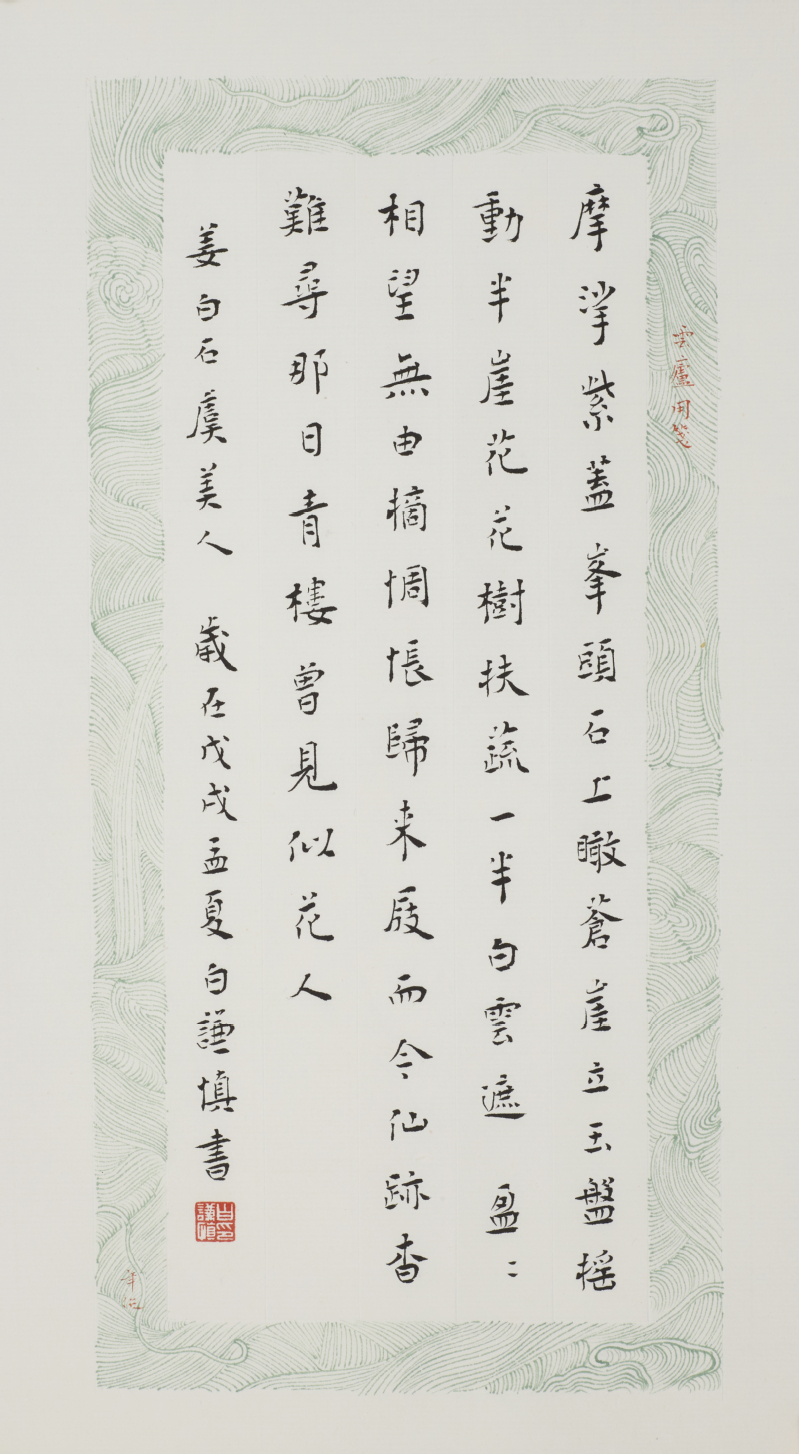 雲廬用箋
摩挲紫蓋峯頭石上瞰蒼崖立玉盤摇
動半崖花花樹扶蔬一半白雲遮 盈〻
相望無由摘惆悵歸来屐而今仙跡杳
難尋那日青樓曾見似花人
姜白石虞美人 歲在戊戌孟夏白謙慎書
白印
謙慎